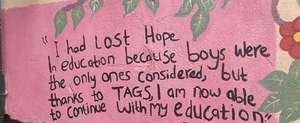 "I had LOST Hope
In education because boys were
the only ones considered, but
thanks to TAGS, I am now able
to continue With my education"